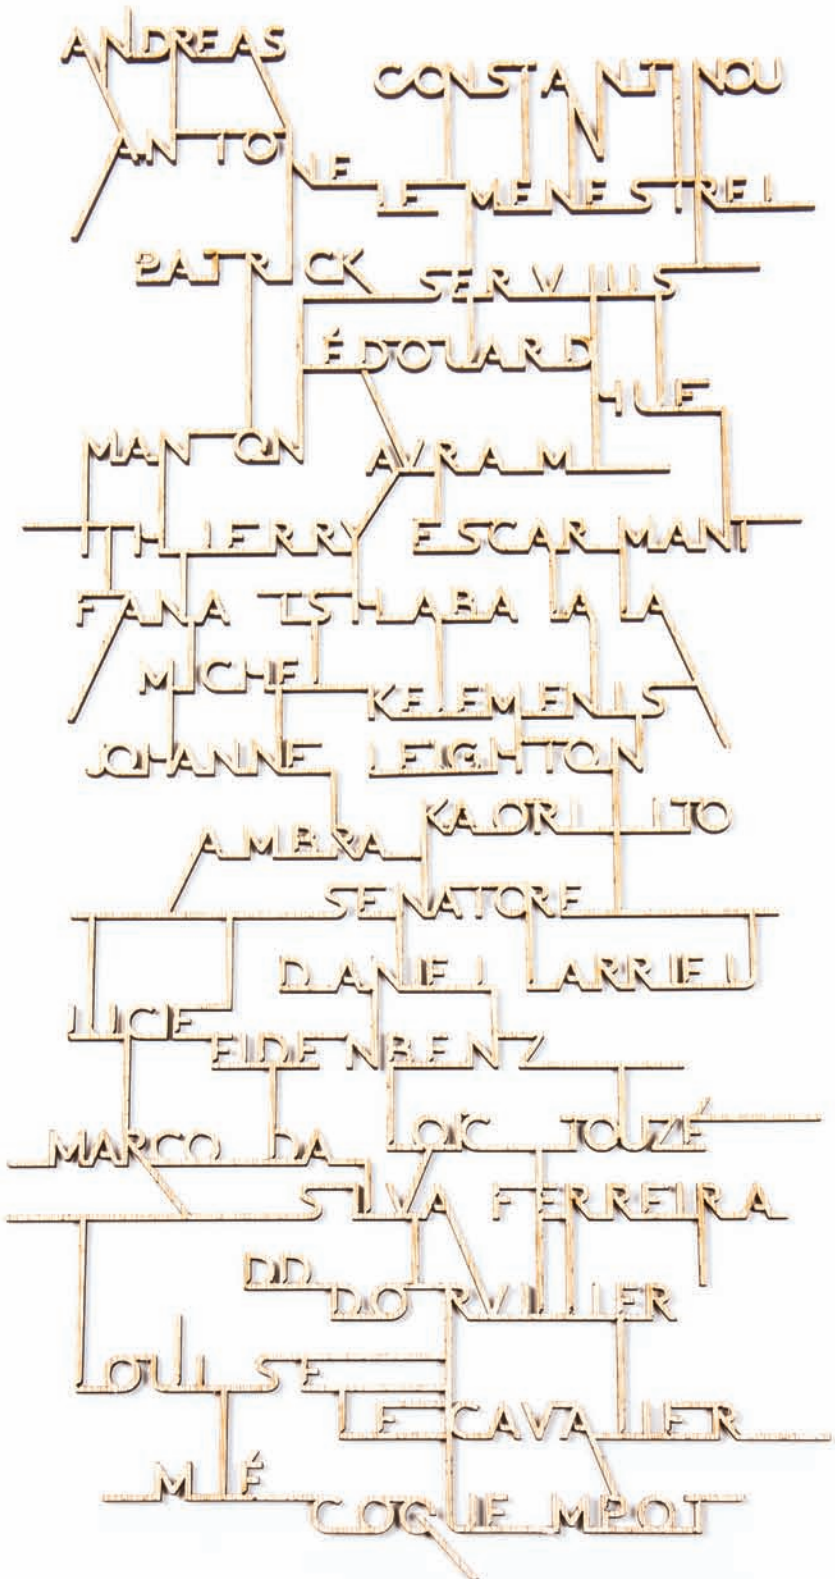 ANDREAS
CONSTANTINOU
ANTOINE
LE MENESTREL
PATRICK
SERVIUS
ÉDOUARD
HUE
MANON
AVRAM
THIERRY ESCARMANT
FANA TSHABALALA
MICHEL
KELEMENIS
JOHANNE LEIGHTON
KAORI ITO
AMBRA
SENATORE
DANIEL LARRIEU
LUCIE
EIDENBENZ
LOÏC TOUZÉ
MARCO DA
SILVA FERREIRA
DD
DORVILLIER
LOUISE
LECAVALIER
MIÉ
COQUEMPOT